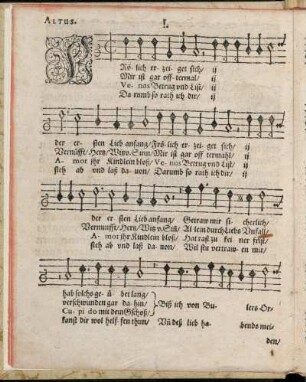 ALTUS. I.
Rölich er- zei- get sich/ ij
Mir ist gar offtermal/ ij
Ve- nus Betrug vnd List/ ij
Darumb so rath ich dir/ ij
der er- sten Lieb anfang/ Frölich er- zei- get sich/ ij
Vernufft/ Hertz/ Sinn/ Mir ist gar offtermahl/ ij
A- mor ihr Kindlein bloß/ Ve- nus Betrug vnd List/ ij
steh ab vnd laß dauon/ Darumb so rath ich dir/ ij
der er- sten Lieb anfang/ Getraw mir si- cherlich/
Vernunfft/ Hertz/ Sinn/ Al lein durch Liebs Vnfall/
A- mor ihr Kindlein bloß/ Hat rast zu kei ner frist/
steh ab vnd laß dauon/ Wil stu vertraw- en mir/
hab solchs ge- ü bet lang/
verschwunden gar da- hin/ Biß ich von Bu- lers-Or-
Cu- pi do mit dem Gschoß/
kanst dir wol helf- fen thun/ Vñ deß lieb ha- bends mei-
den/